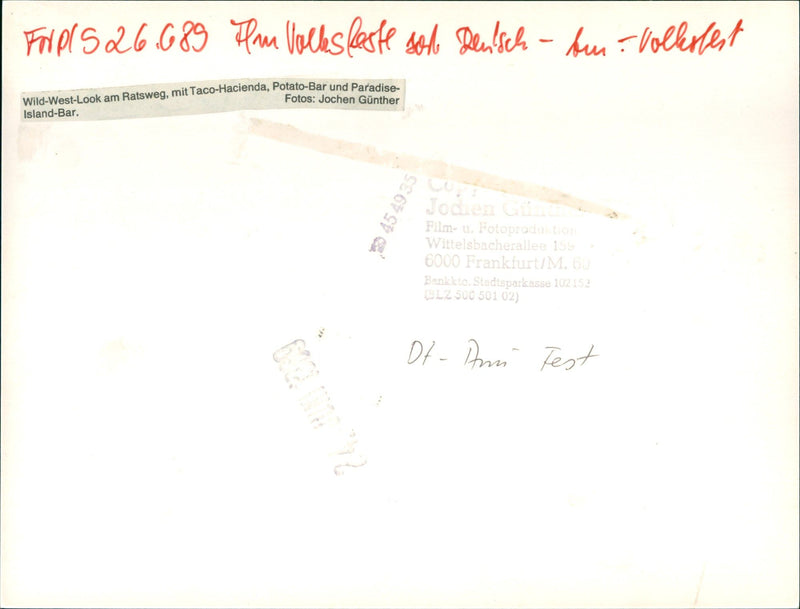 FNP/S 26.6.89 Ffm Volksfeste sot. Deutsch - Am - Volksfest
Wild-West-Look am Ratsweg, mit Taco-Hacienda, Potato-Bar und Paradise-
Island-Bar. Fotos: Jochen Günther
454935
Jochen Günth
Film- u. Fotoproduktion
Wittelsbacherallee 159
6000 Frankfurt/M. 60
Bankkto. Stadtsparkasse 102152
(BLZ 500 501 02)
Dt - Ami Fest